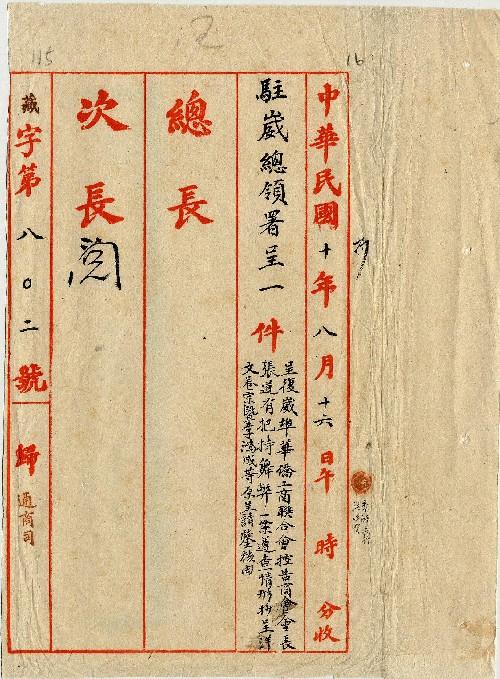 115
12
16
中華民國十年八月十六日午 時 分收
駐崴總領署呈一件
呈復崴埠華僑工商聯合會控告商會會長
張道有把持舞弊一案遵查情形抄呈洋
文卷宗暨李鴻成等原呈請鑒核由
總長
次長
閱
藏字第八〇二號
歸通商司